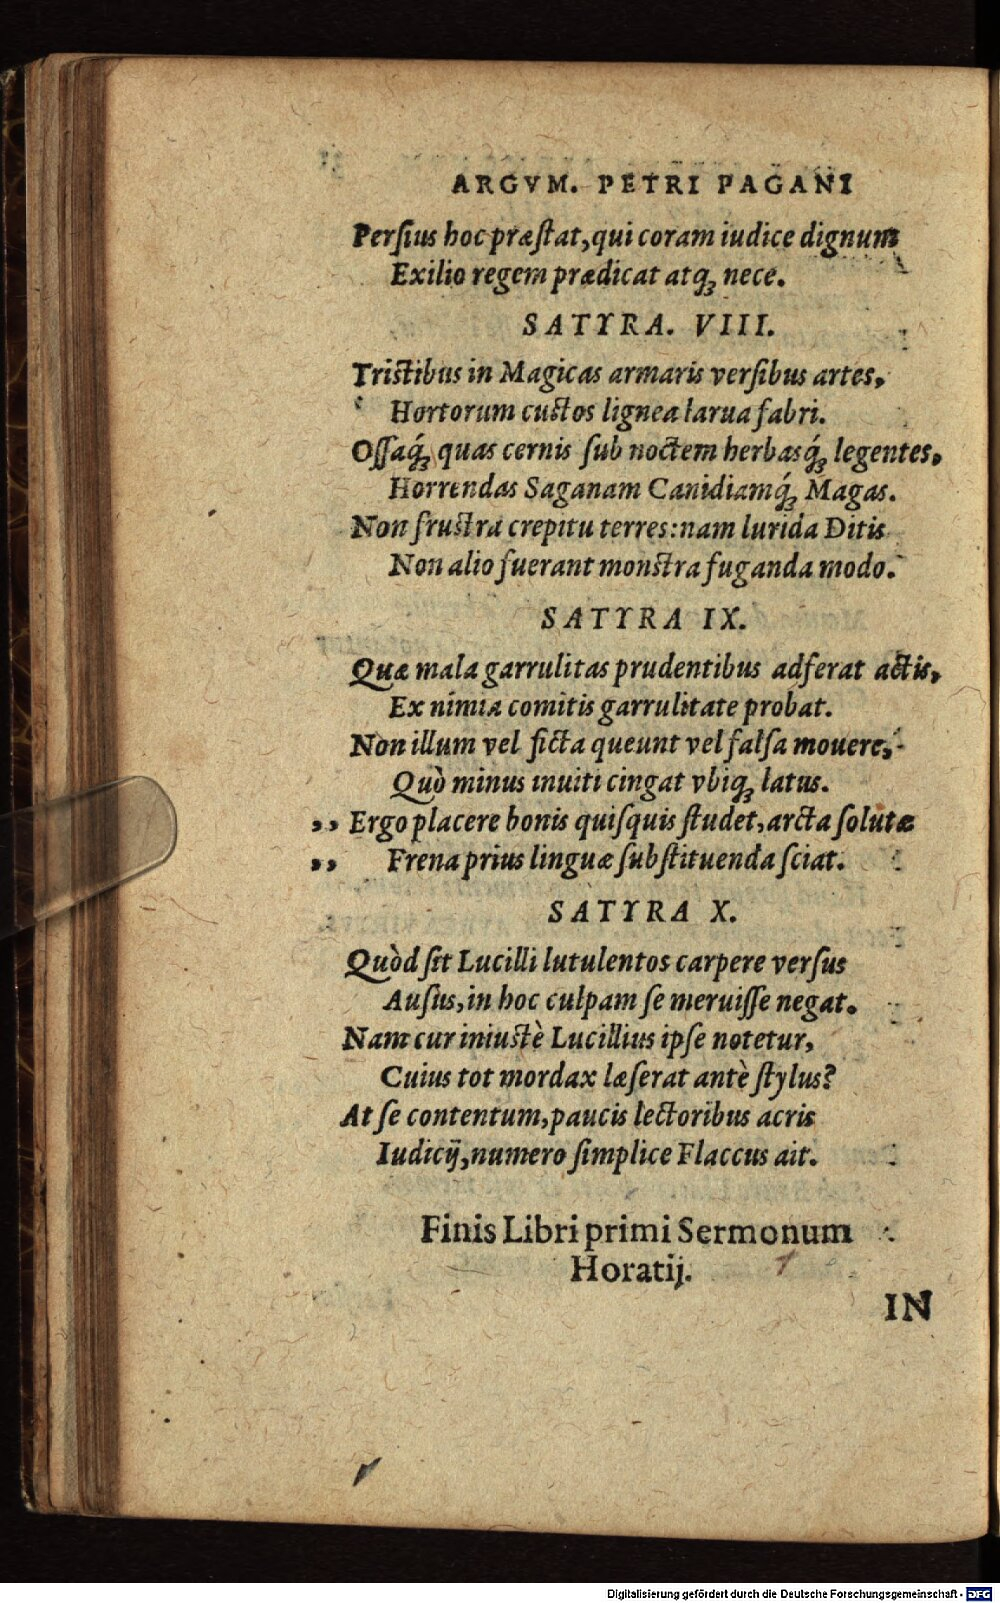 ARGVM. PETRI PAGANI
Perſius hoc præſtat, qui coram iudice dignum
Exilio regem prædicat atqꝫ nece.
SATYRA. VIII.
Tristibus in Magicas armaris verſibus artes,
Hortorum custos lignea larua fabri.
Oſſaq́ꝫ quas cernis ſub noctem herbasq́ꝫ legentes,
Horrendas Saganam Canidiamq́ꝫ Magas.
Non frustra crepitu terres: nam lurida Ditis
Non alio fuerant monstra fuganda modo.
SATYRA IX.
Quæ mala garrulitas prudentibus adferat actis,
Ex nimia comitis garrulitate probat.
Non illum vel ficta queunt vel falſa mouere,
Quò minus inuiti cingat vbiqꝫ latus.
,, Ergo placere bonis quiſquis ſtudet, arcta ſolutæ
,, Frena prius linguæ ſubſtituenda ſciat.
SATYRA X.
Quòd ſit Lucilli lutulentos carpere verſus
Auſus, in hoc culpam ſe meruiſſe negat.
Nam cur iniustè Lucillius ipſe notetur,
Cuius tot mordax læſerat antè ſtylus?
At ſe contentum, paucis lectoribus acris
Iudicij, numero ſimplice Flaccus ait.
Finis Libri primi Sermonum
Horatij.
IN
Digitalisierung gefördert durch die Deutsche Forschungsgemeinschaft - DFG